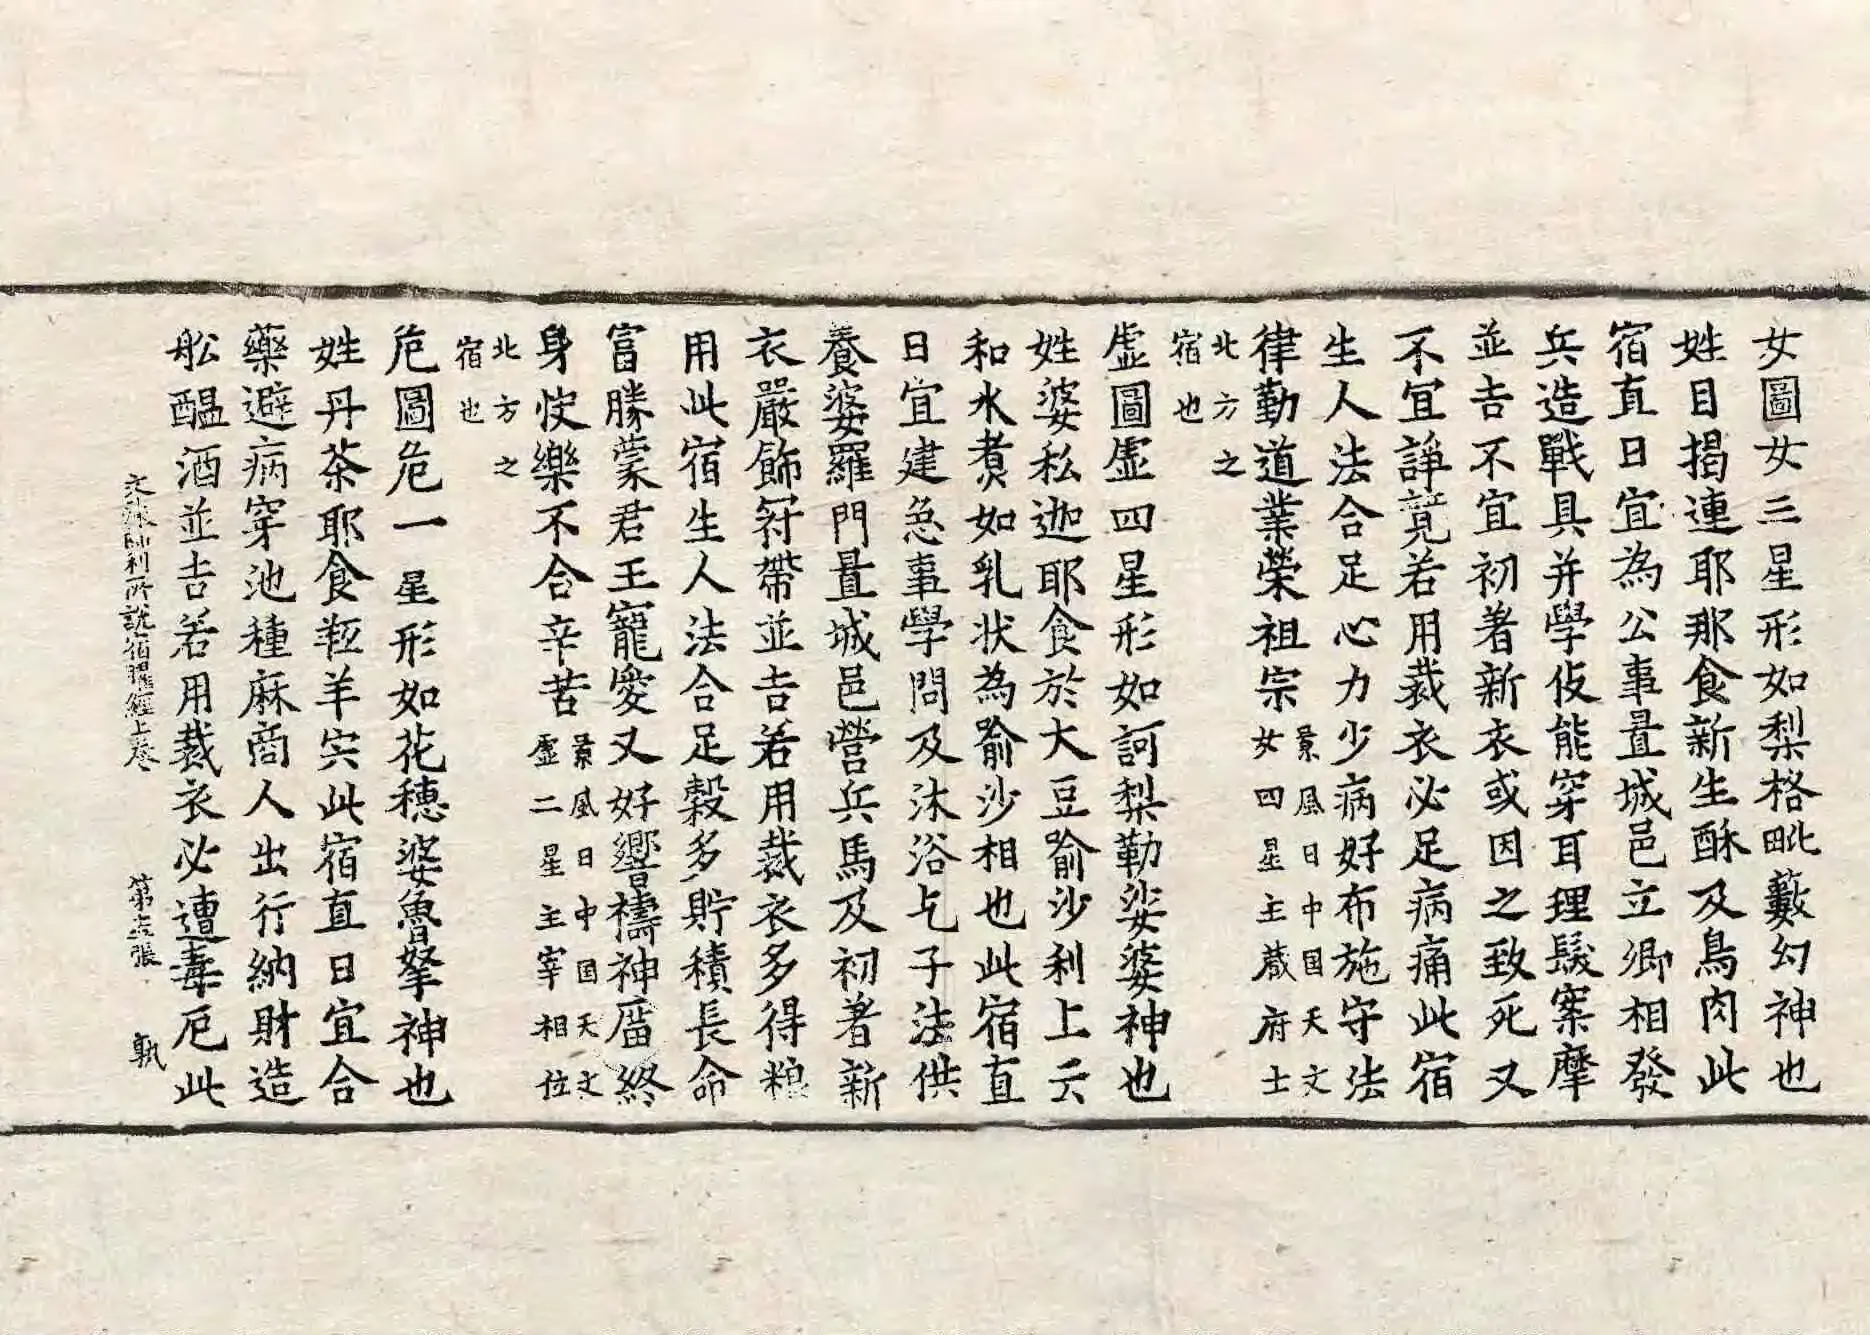 女圖女三星形如梨格毗藪幻神也
姓目揭連耶那食新生酥及鳥肉此
宿直日宜為公事置城邑立卿相發
兵造戰具并學伎能穿耳理髮案摩
並吉不宜初著新衣或因之致死又
不宜諍竟若用裁衣必足病痛此宿
生人法合足心力少病好布施守法
律勤道業榮祖宗景風日中国天文
女四星主藏府士
北方之
宿也
虛圖虛四星形如訶梨勒娑婆神也
姓婆私迦耶食於大豆喻沙利上云
和水煮如乳状為喻沙相也此宿直
日宜建急事學問及沐浴乞子法供
養婆羅門置城邑營兵馬及初著新
衣嚴飾符帶並吉若用裁衣多得粮
用此宿生人法合足穀多貯積長命
富勝蒙君王寵愛又好響禱神廟終
身快樂不合辛苦景風日中国天文
虛二星主宰相位
北方之
宿也
危圖危一星形如花穗婆魯拏神也
姓丹茶耶食粳羊宍此宿直日宜合
藥避病穿池種麻商人出行納財造
舩醖酒並吉若用裁衣必遭毒厄此
文殊師利所說宿曜經上卷 第張 孰